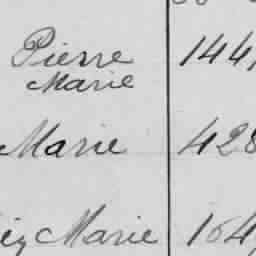 Pierre 144
Marie
Marie 428
Marie 164